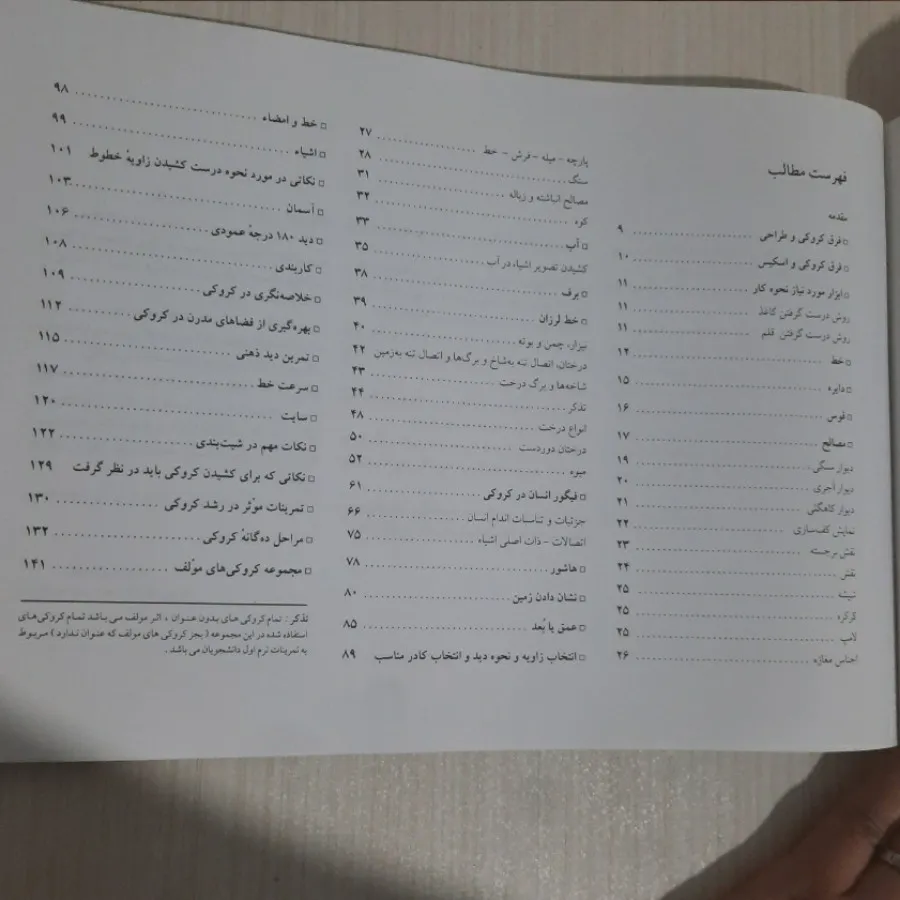 فهرست مطالب
مقدمه
□ فرق کروکی و طراحی ........ ۹
□ فرق کروکی و اسکیس ........ ۱۰
□ ابزار مورد نیاز نحوه کار ........ ۱۱
روش درست گرفتن کاغذ ........ ۱۱
روش درست گرفتن قلم ........ ۱۱
□ خط ........ ۱۲
□ دایره ........ ۱۵
□ قوس ........ ۱۶
□ مصالح ........ ۱۷
دیوار سنگی ........ ۱۹
دیوار آجری ........ ۲۰
دیوار کاهگلی ........ ۲۱
نمایش کف‌سازی ........ ۲۲
نقش برجسته ........ ۲۳
نقش ........ ۲۴
شیشه ........ ۲۵
کرکره ........ ۲۵
لامپ ........ ۲۵
اجناس مغازه ........ ۲۶
پارچه - میله - فرش - خط ........ ۲۷
سنگ ........ ۲۸
مصالح انباشته و زباله ........ ۳۱
کوه ........ ۳۲
□ آب ........ ۳۳
کشیدن تصویر اشیاء در آب ........ ۳۵
□ برف ........ ۳۸
□ خط لرزان ........ ۳۹
نیزار، چمن و بوته ........ ۴۰
درختان، اتصال تنه به‌شاخ و برگ‌ها و اتصال تنه به‌زمین ۴۲
شاخه‌ها و برگ درخت ........ ۴۳
تذکر ........ ۴۴
انواع درخت ........ ۴۸
درختان دوردست ........ ۵۰
میوه ........ ۵۲
□ فیگور انسان در کروکی ........ ۶۱
جزئیات و تناسبات اندام انسان ........ ۶۶
اتصالات - ذات اصلی اشیاء ........ ۷۵
□ هاشور ........ ۷۸
□ نشان دادن زمین ........ ۸۰
□ عمق یا بُعد ........ ۸۵
□ انتخاب زاویه و نحوه دید و انتخاب کادر مناسب ۸۹
□ خط و امضاء ........ ۹۸
□ اشیاء ........ ۹۹
□ نکاتی در مورد نحوه درست کشیدن زاویهٔ خطوط ۱۰۱
□ آسمان ........ ۱۰۳
□ دید ۱۸۰ درجهٔ عمودی ........ ۱۰۶
□ کاربندی ........ ۱۰۸
□ خلاصه‌نگری در کروکی ........ ۱۰۹
□ بهره‌گیری از فضاهای مدرن در کروکی ........ ۱۱۲
□ تمرین دید ذهنی ........ ۱۱۵
□ سرعت خط ........ ۱۱۷
□ سایت ........ ۱۲۰
□ نکات مهم در شیت‌بندی ........ ۱۲۲
□ نکاتی که برای کشیدن کروکی باید در نظر گرفت ۱۲۹
□ تمرینات مؤثر در رشد کروکی ........ ۱۳۰
□ مراحل ده‌گانهٔ کروکی ........ ۱۳۲
□ مجموعه کروکی‌های مؤلف ........ ۱۴۱
تذکر : تمام کروکی های بدون عنوان ، اثر مولف می باشد تمام کروکی‌های
استفاده شده در این مجموعه ( بجز کروکی های مولف که عنوان ندارد ) مربوط
به تمرینات ترم اول دانشجویان می باشد .